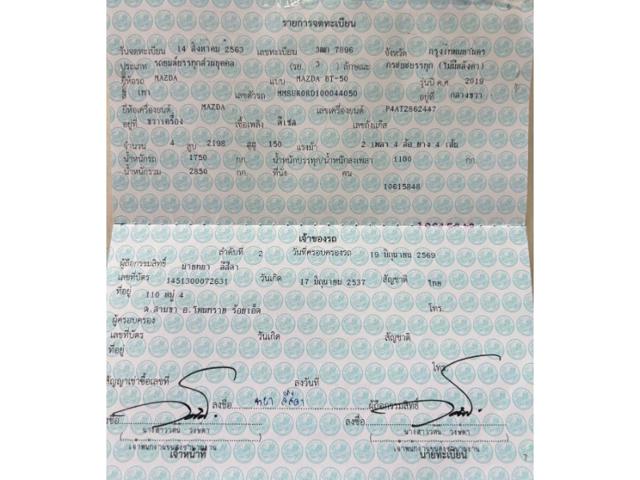 รายการจดทะเบียน
วันจดทะเบียน 14 สิงหาคม 2563 เลขทะเบียน 3ฒฌ 7896 จังหวัด กรุงเทพมหานคร
ประเภท รถยนต์บรรทุกส่วนบุคคล (รย. 3 ) ลักษณะ กระบะบรรทุก (ไม่มีหลังคา)
ยี่ห้อรถ MAZDA แบบ MAZDA BT-50 รุ่นปี ค.ศ 2019
สี เทา เลขตัวรถ MM8UR0RD100044050 อยู่ที่ กลางขวา
ยี่ห้อเครื่องยนต์ MAZDA เลขเครื่องยนต์ P4AT2862447
อยู่ที่ ขวาเครื่อง เชื้อเพลิง ดีเซล เลขถังแก๊ส
จำนวน 4 สูบ 2198 ซีซี 150 แรงม้า 2 เพลา 4 ล้อ ยาง 4 เส้น
น้ำหนักรถ 1750 กก. น้ำหนักบรรทุก/น้ำหนักลงเพลา 1100 กก.
น้ำหนักรวม 2850 กก. ที่นั่ง คน
10615848
เจ้าของรถ
ลำดับที่ 2 วันที่ครอบครองรถ 19 มิถุนายน 2569
ผู้ถือกรรมสิทธิ์ นายทยา สีสีลา
เลขที่บัตร 1451300072631 วันเกิด 17 มิถุนายน 2537 สัญชาติ ไทย
ที่อยู่ 110 หมู่ 4
ต.สามขา อ.โพนทราย ร้อยเอ็ด โทร.
ผู้ครอบครอง
เลขที่บัตร วันเกิด สัญชาติ
ที่อยู่
โทร.
สัญญาเช่าซื้อเลขที่ ลงวันที่
ลงชื่อ ผู้ถือกรรมสิทธิ์
ลงชื่อ ลงชื่อ
เจ้าพนักงานขนส่งชำนาญงาน เจ้าพนักงานขนส่งชำนาญงาน
เจ้าหน้าที่ นายทะเบียน
7